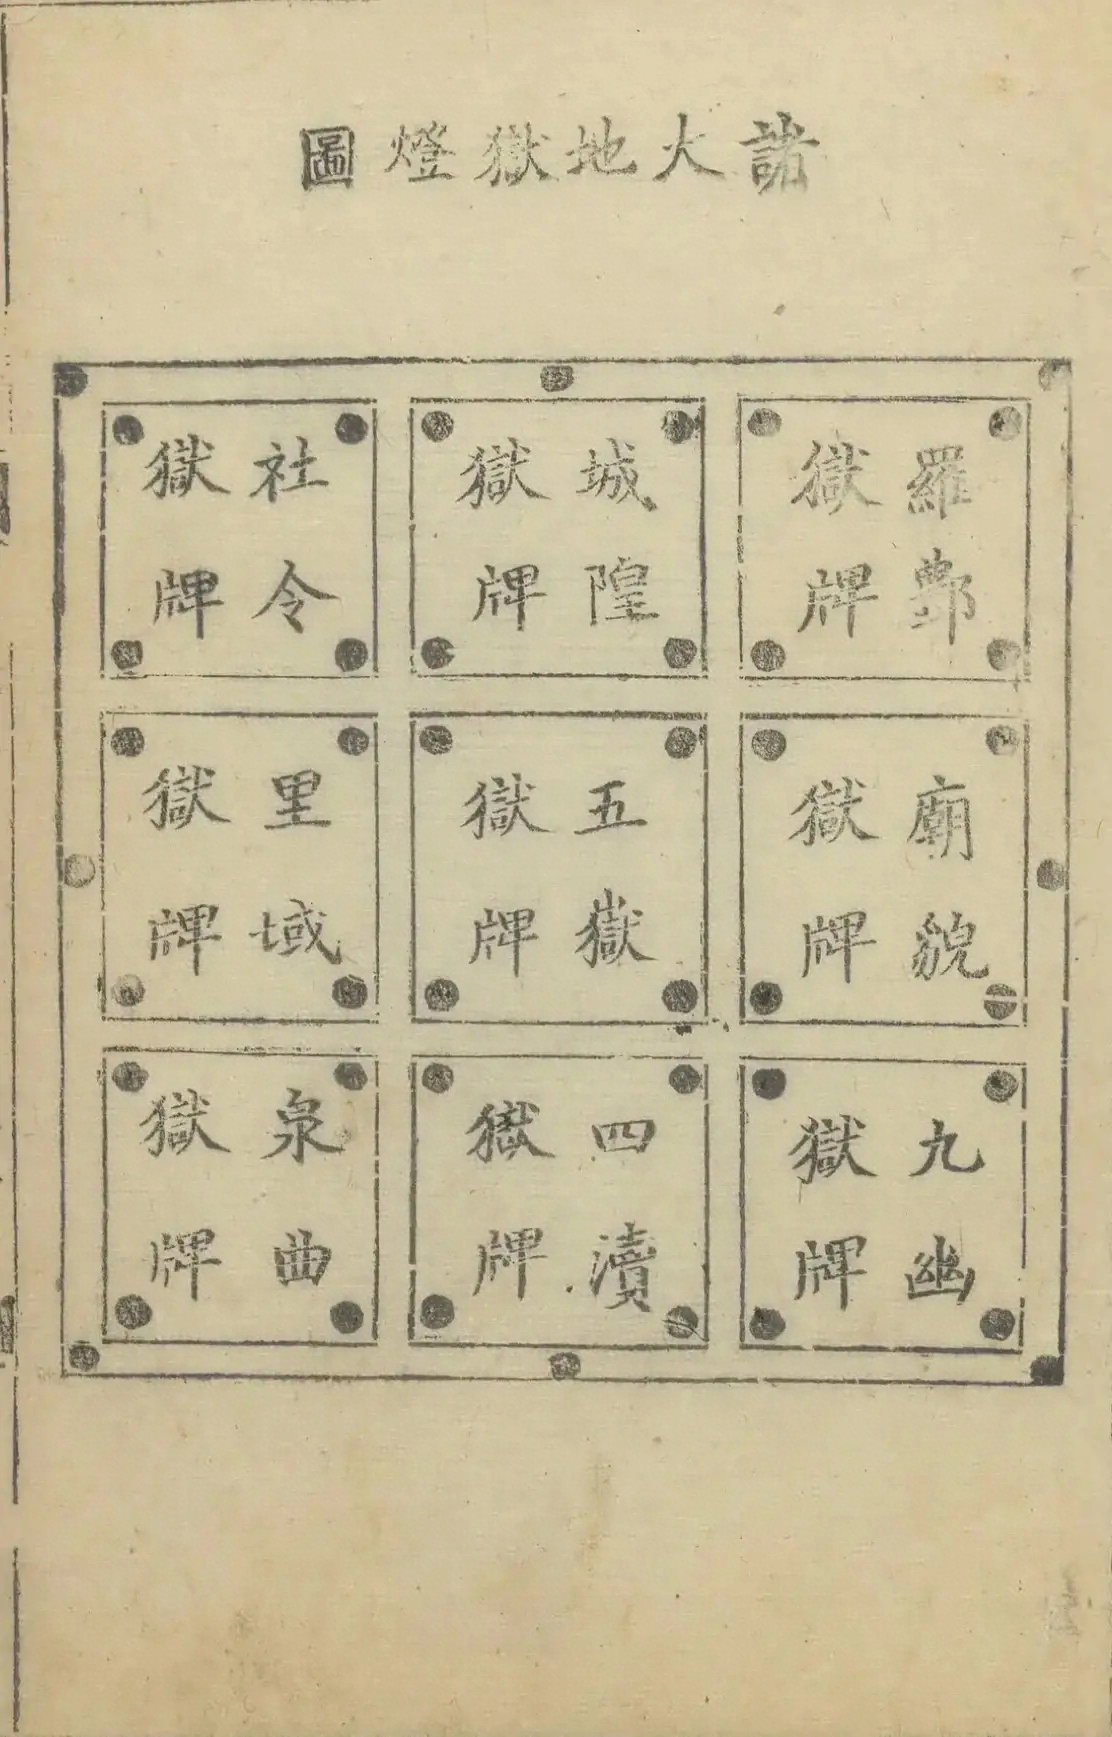 諸大地獄燈圖
羅酆
獄牌
城隍
獄牌
社令
獄牌
廟貌
獄牌
五嶽
獄牌
里域
獄牌
九幽
獄牌
四瀆
獄牌
泉曲
獄牌